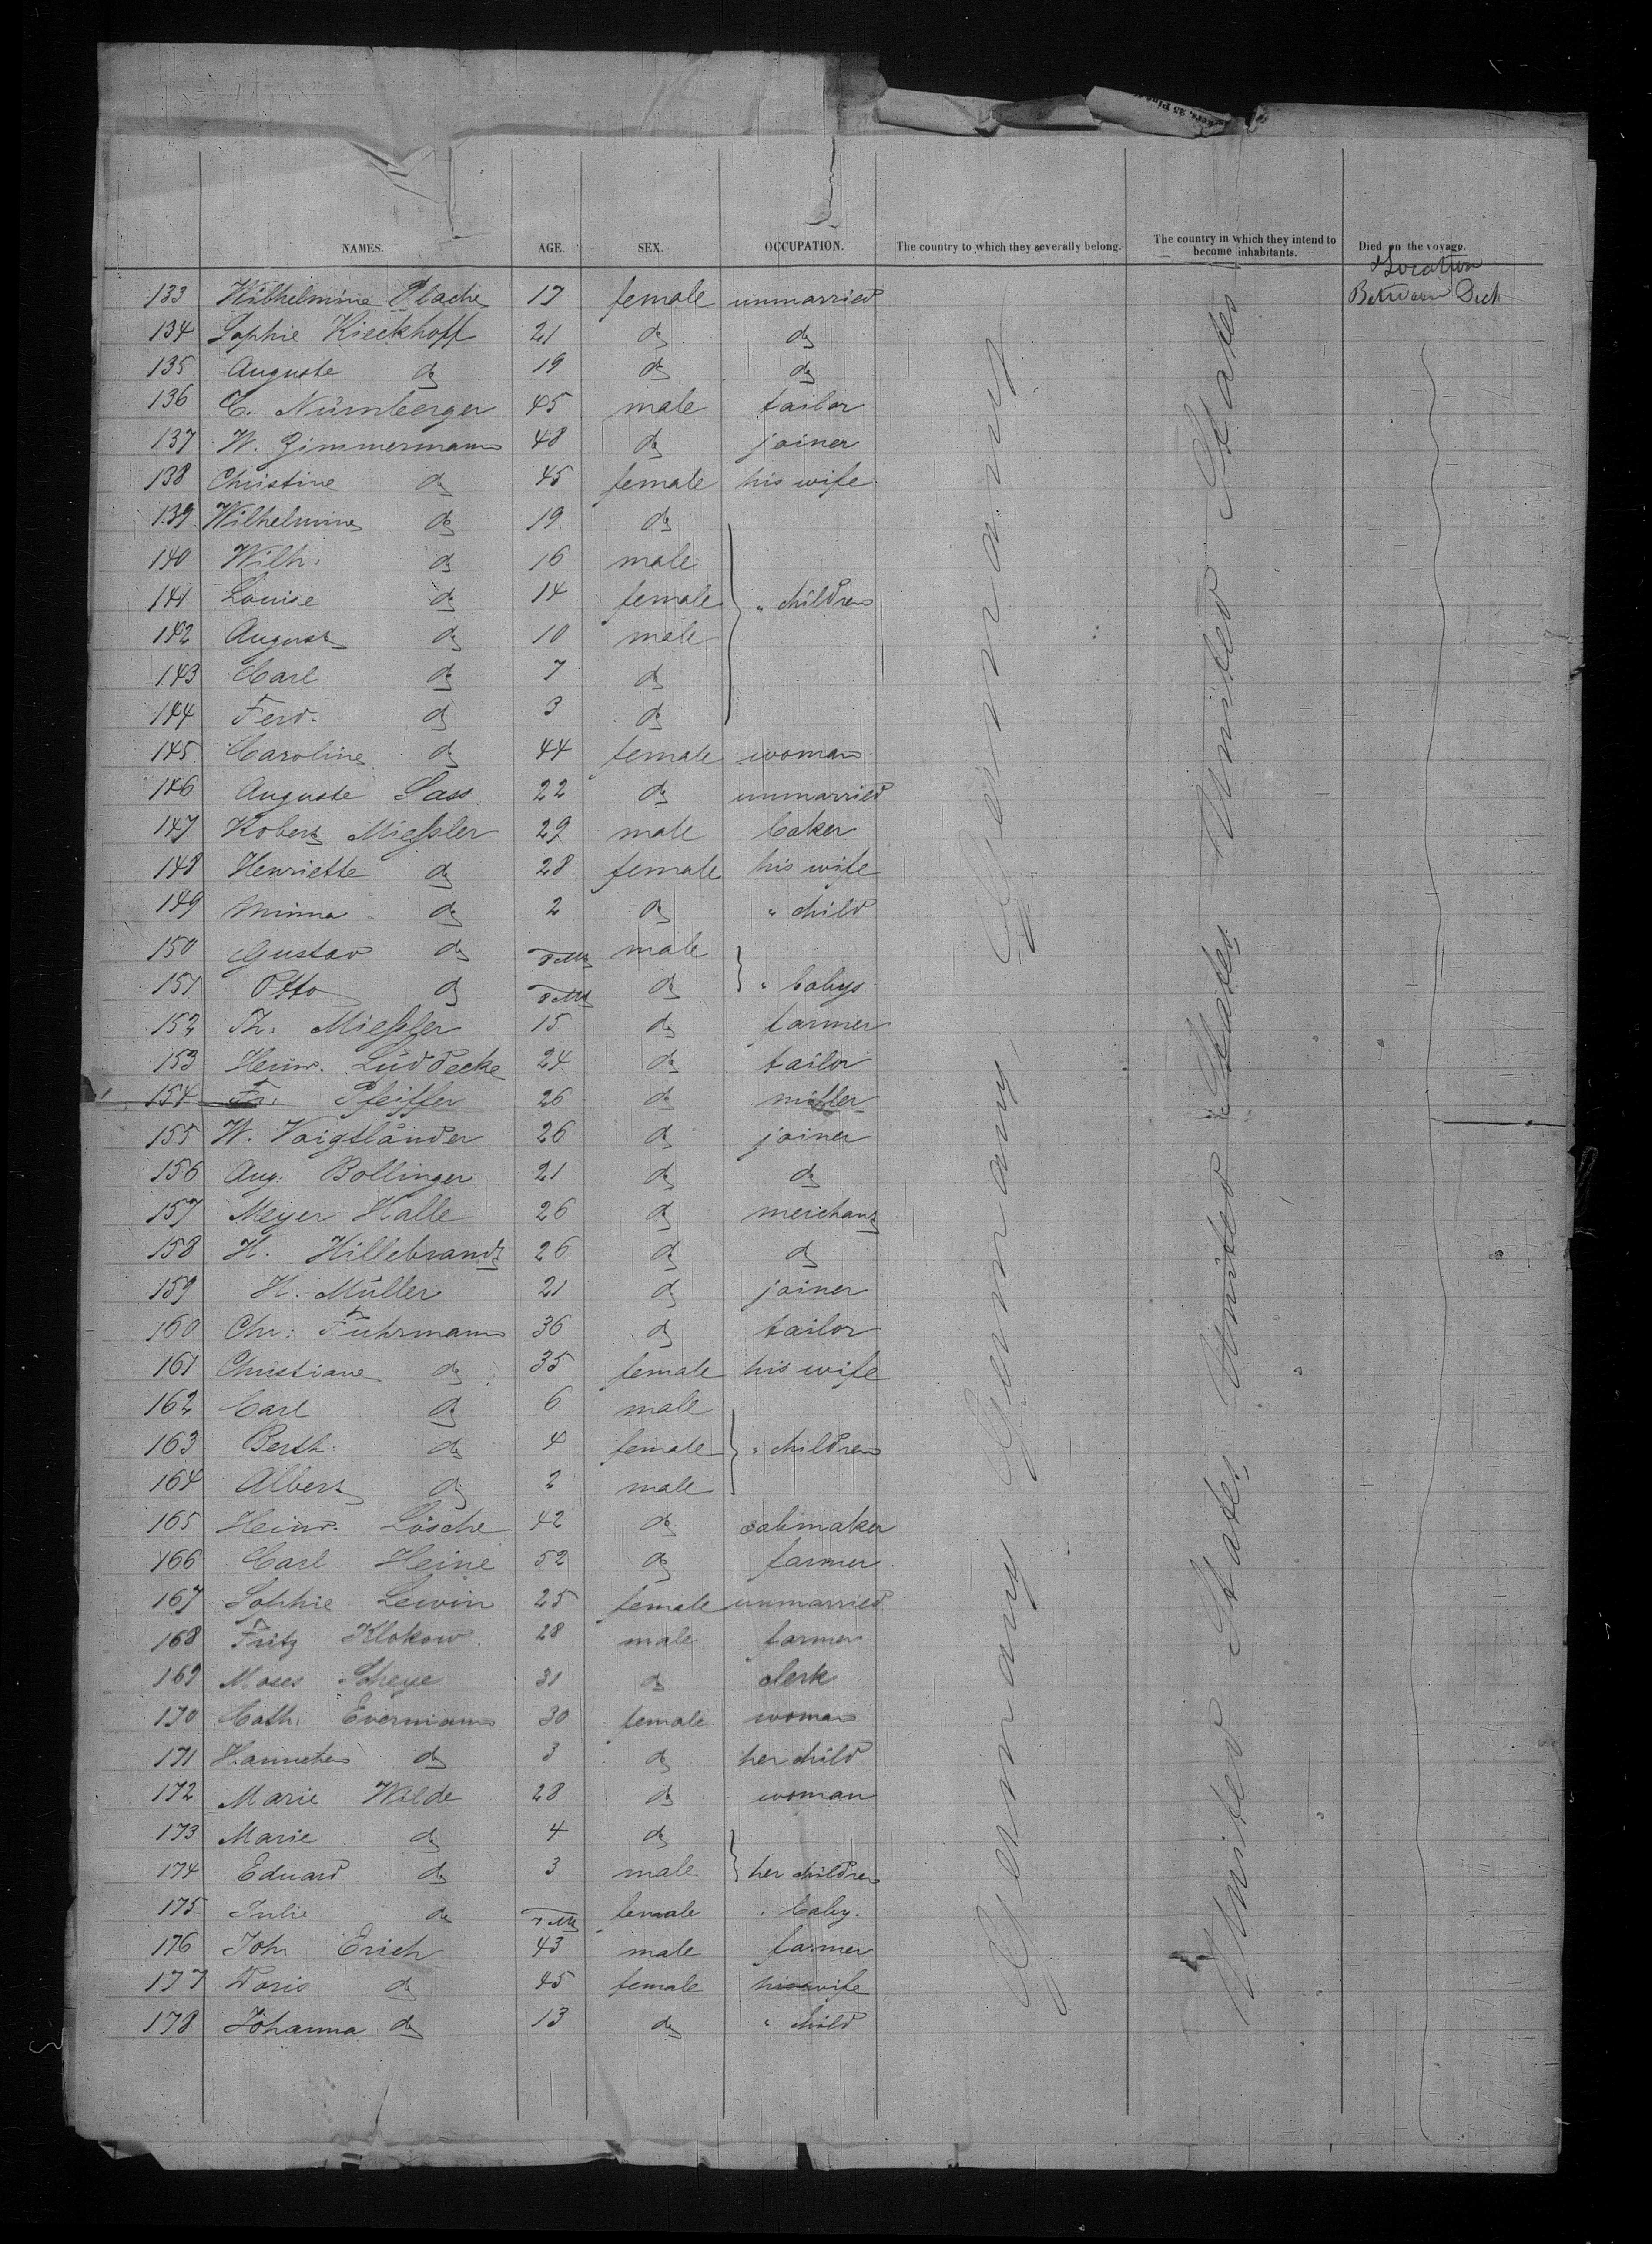 NAMES. AGE. SEX. OCCUPATION. The country to which they severally belong. The country in which they intend to become inhabitants. Died on the voyage.
Location
Between Deck
133 Wilhelmine Plache 17 female unmarried
134 Sophie Kieckhoff 21 do do
135 Auguste do 19 do do
136 C. Nürnberger 45 male tailor
137 W. Zimmermann 48 do joiner
138 Christine do 45 female his wife
139 Wilhelmine do 19 do
140 Wilh. do 16 male
141 Louise do 14 female " children
142 August do 10 male
143 Carl do 7 do
144 Ferd. do 3 do
145 Caroline do 44 female woman
146 Auguste Sass 22 do unmarried
147 Robert Mießler 29 male baker
148 Henriette do 28 female his wife
149 Minna do 2 do " child
150 Gustav do male
151 Otto do do " babys
152 Th. Mießler 15 do farmer
153 Heinr. Lüddecke 24 do tailor
154 Fr. Pfeiffer 26 do miller
155 W. Voigtländer 26 do joiner
156 Aug. Bollinger 21 do do
157 Meyer Halle 26 do merchant
158 H. Hillebrandt 26 do do
159 H. Müller 21 do joiner
160 Chr. Fuhrmann 36 do tailor
161 Christiane do 35 female his wife
162 Carl do 6 male
163 Berth. do 4 female " children
164 Albert do 2 male
165 Heinr. Lösche 42 do cabmaker
166 Carl Heine 52 do farmer
167 Sophie Lewin 25 female unmarried
168 Fritz Klokow. 28 male farmer
169 Moses Scheye 31 do clerk
170 Cath. Evermann 30 female woman
171 Hannchen do 3 do her child
172 Marie Wilde 28 do woman
173 Marie do 4 do
174 Eduard do 3 male her children
175 Julie do female " baby.
176 Joh Erich 43 male farmer
177 Doris do 45 female his wife
178 Johanna do 13 do " child
Germany Germany Germany
United States United States United States